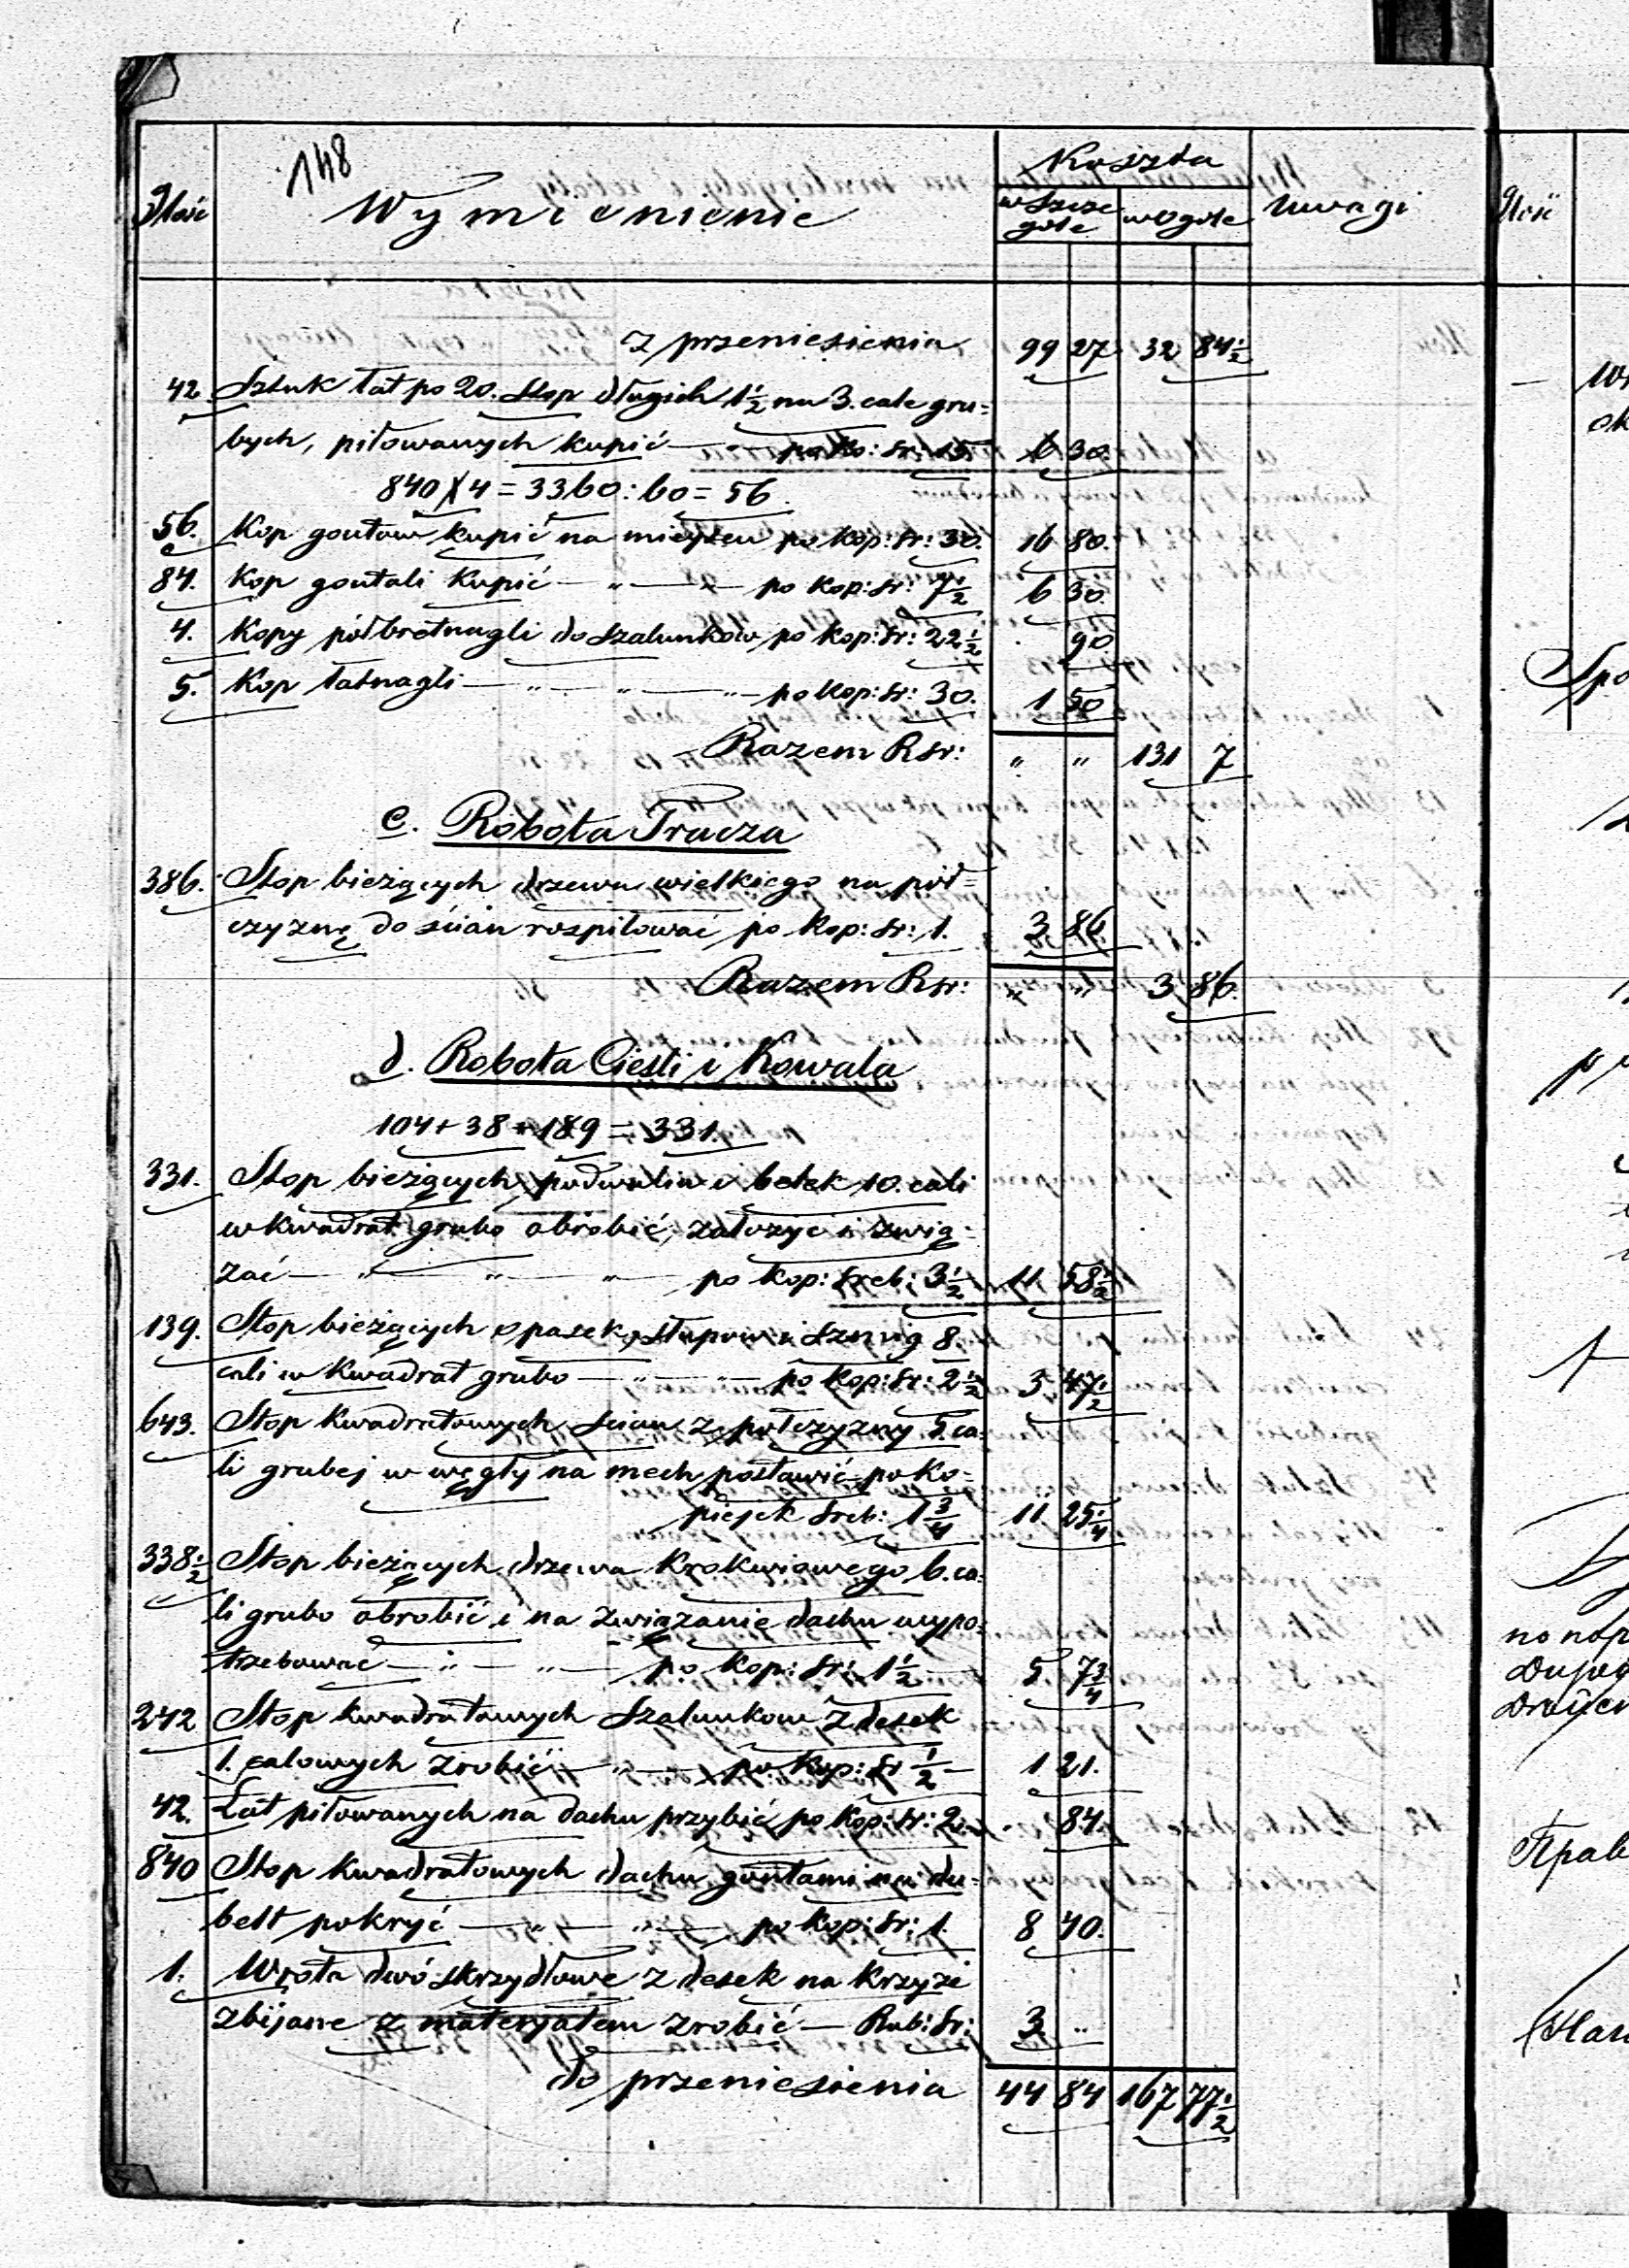 148
Ilość
Wymienienie
Koszta
w szcze
góle
w ogóle
Uwagi
Ilość
z przeniesienia 99 27 32 84 1/2
42. Sztuk łat po 20. stop długich 1 1/2 na 3. cale gru=
bych, piłowanych kupić — po ko: sr: 15 6 30.
840 X 4 = 3360 : 60 = 56.
56. Kop gontów kupić na mieyscu po kop: sr: 30. 16 80.
84. Kop gontali kupić — „ — „ — po kop: sr: 7 1/2 6 30.
4. Kopy półbretnagli do szalunków po kop: sr: 22 1/2 . 90
5. Kop łatnagli — „ — „ — „ — po kop: sr: 30. 1 50
Razem Rsr: „ „ 131 7
c. Robota Tracza
386. Stop bieżących drzewa wielkiego na pół=
czyznę do ścian rospiłować po kop: sr: 1. 3 86
Razem Rsr: „ „ 3 86.
d. Robota Cieśli i Kowala
104 + 38 + 189 = 331.
331. Stop bieżących podwalin i belek 10. cali
w kwadrat grubo obrobić, założyć i zwią=
zać — „ — „ — „ — po kop: sreb: 3 1/2 11 58 1/2
139. Stop bieżących opasek, słupów i szmig 8.
cali w kwadrat grubo — „ — „ — po kop: sr: 2 1/2 3 47 1/2
643. Stop kwadratowych ścian z połczyzny 5. ca=
li grubej w węgły na mech postawić po ko=
piejek sreb: 1 3/4 11 25 1/4
338 1/2 Stop bieżących drzewa krokwiowego 6. ca=
li grubo obrobić i na związanie dachu wypo=
trzebować — „ — „ — po kop: sr: 1 1/2 — 5 7 3/4
242 Stop kwadratowych szalunków z desek
1. calowych zrobić — „ — po kop: sr 1/2 — 1 21.
42. Łat piłowanych na dachu przybić po kop: sr: 2. . 84.
840 Stop kwadratowych dachu gontami na du=
belt pokryć — „ — „ — po kop: sr: 1. 8 40.
1. Wrota dwóskrzydłowe z desek na krzyże
zbijane z materyałem zrobić — Rub: sr: 3 „
do przeniesienia 44 84 167 77 1/2